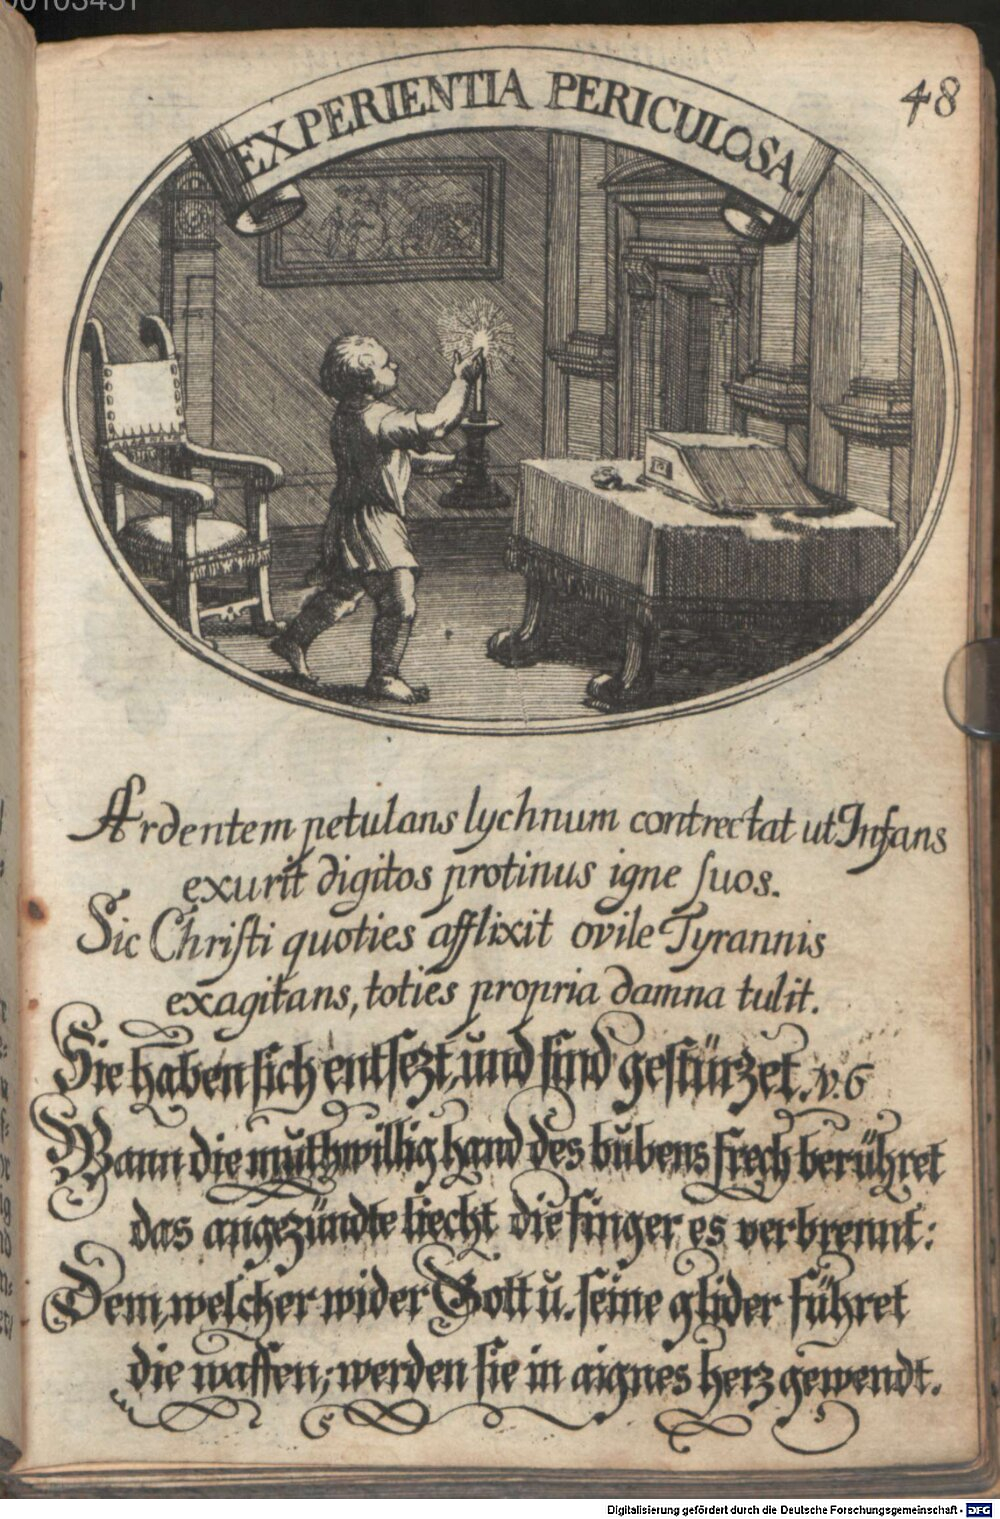 00103451
48
EXPERIENTIA PERICULOSA.
Ardentem petulans lychnum contrectat ut Infans
exurit digitos protinus igne suos.
Sic Christi quoties afflixit ovile Tyrannis
exagitans, toties propria damna tulit.
Sie haben sich entsezt, und sind gestürzet. v. 6
Wann die muthwillig hand des bubens frech berühret
das angezündte liecht die finger es verbrennt:
Dem, welcher wider Gott u. seine glider führet
die waffen; werden sie in aignes herz gewendt.
Digitalisierung gefördert durch die Deutsche Forschungsgemeinschaft - DFG